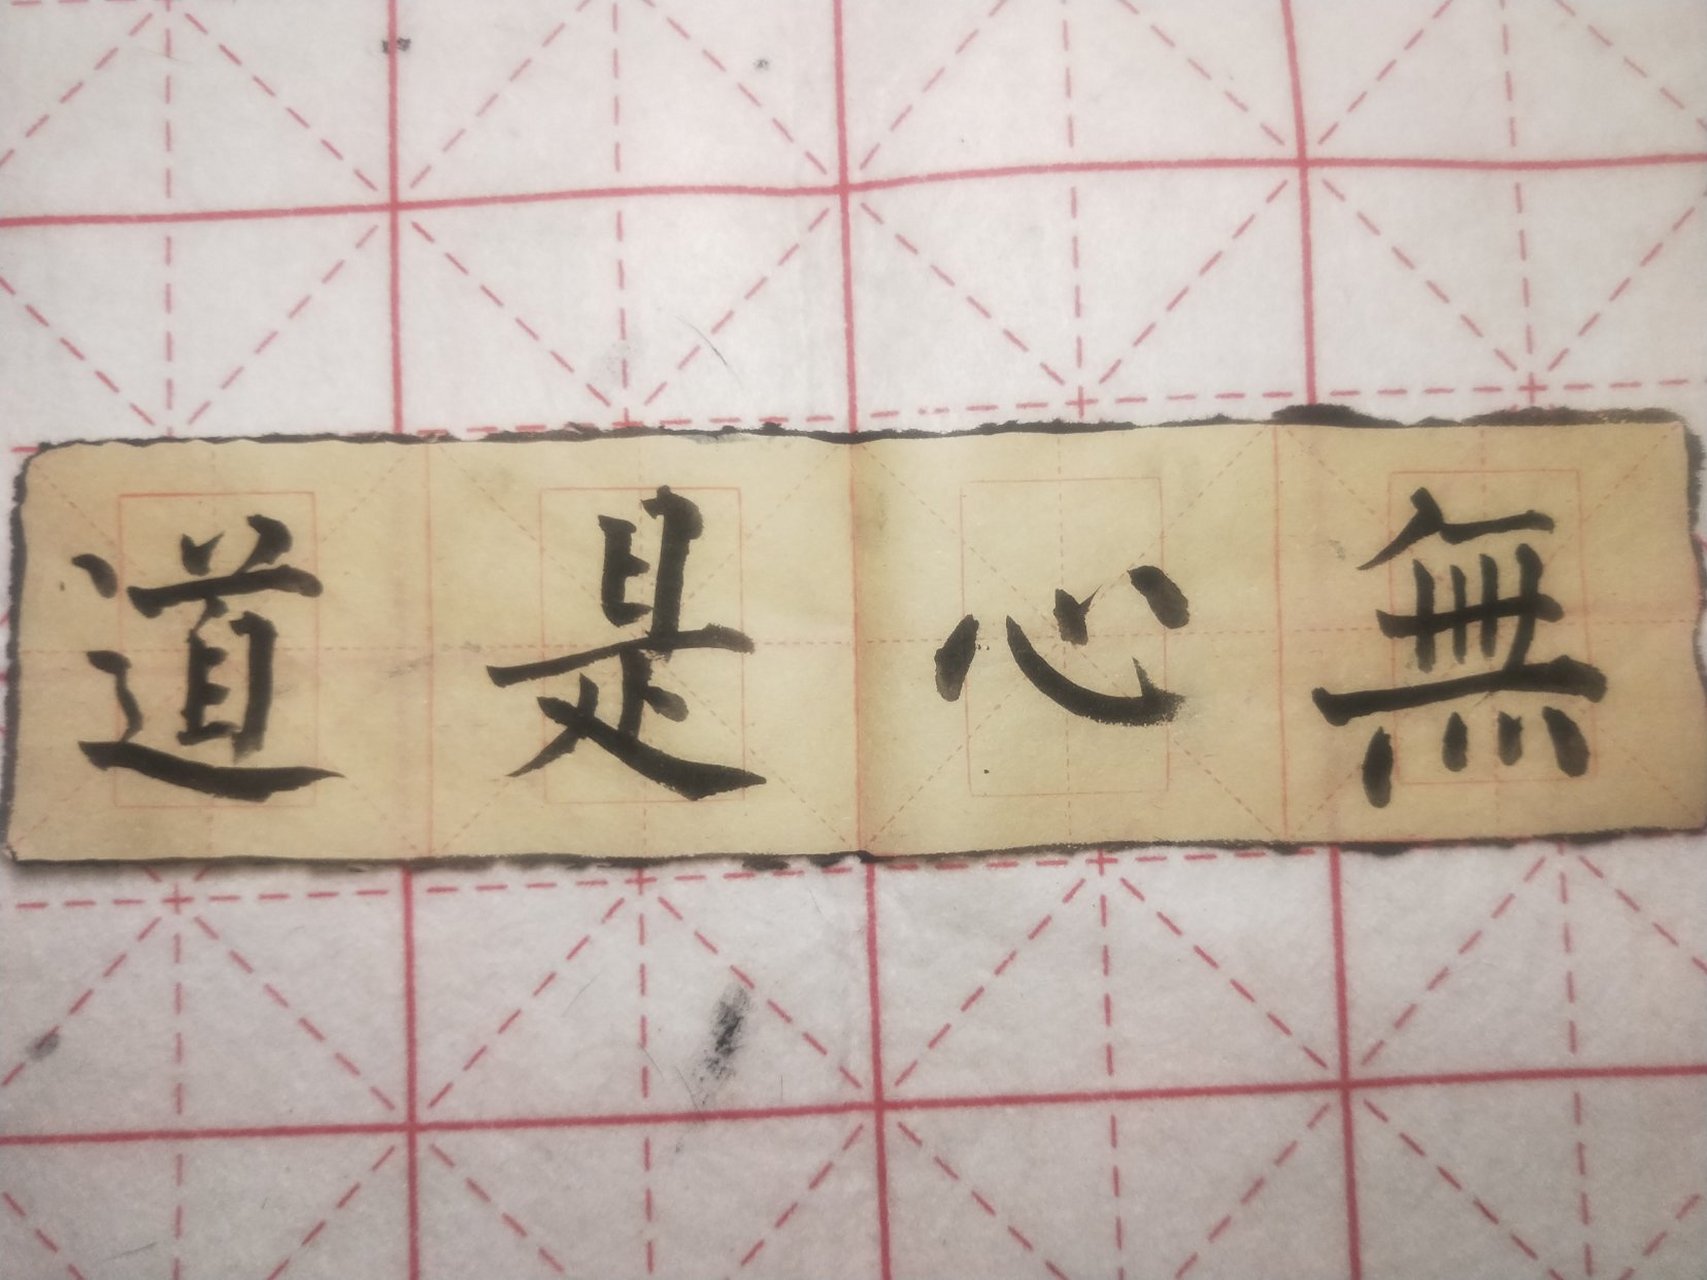 無心是道